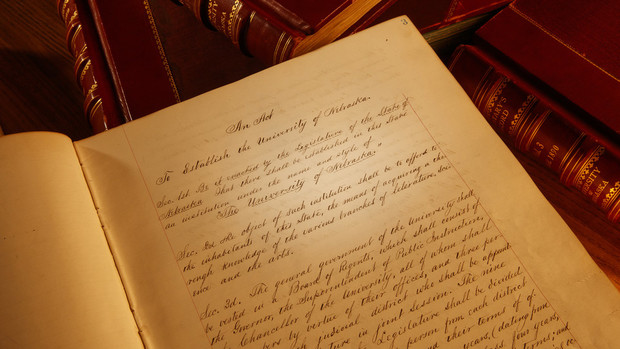 3
An Act
To Establish the University of Nebraska.
Sec. 1st. Be it enacted by the Legislature of the State of
Nebraska That there shall be established in this State
an institution under the name and style of
"The University of Nebraska."
Sec. 2d. The object of such institution shall be to afford to
the inhabitants of this State, the means of acquiring a tho-
rough knowledge of the various branches of literature, Sci-
ence and the arts.
Sec. 3d. The general government of the University shall
be vested in a Board of Regents, which shall consist of
the Governor, the Superintendent of Public Instruction,
the Chancellor of the University, all of whom shall
be members by virtue of their offices, and three per-
each judicial district who shall be appoint
Legislature in joint Session. The nine
the Legislature shall be divided
person from each district
and their terms of of-
years, (dating from
four years, and
1870